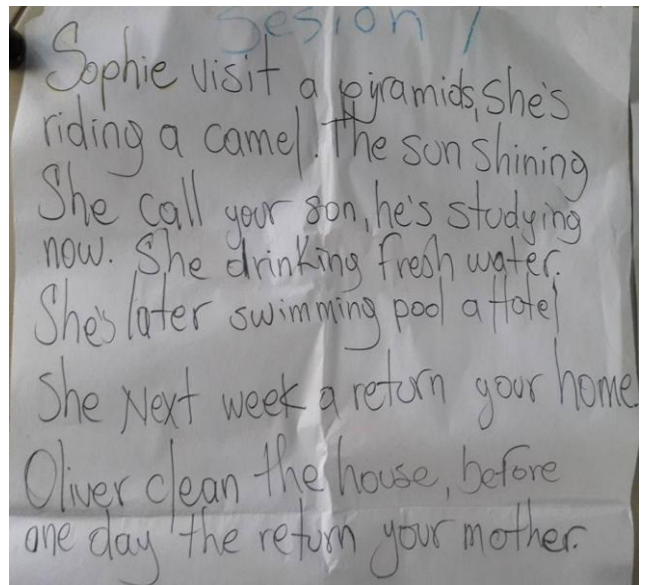 Sesion 1
Sophie visit a pyramids, she's
riding a camel. The sun shining
She call your son, he's studying
now. She drinking fresh water.
She's later swimming pool a Hotel
She Next week a return your home.
Oliver clean the house, before
one day the return your mother.